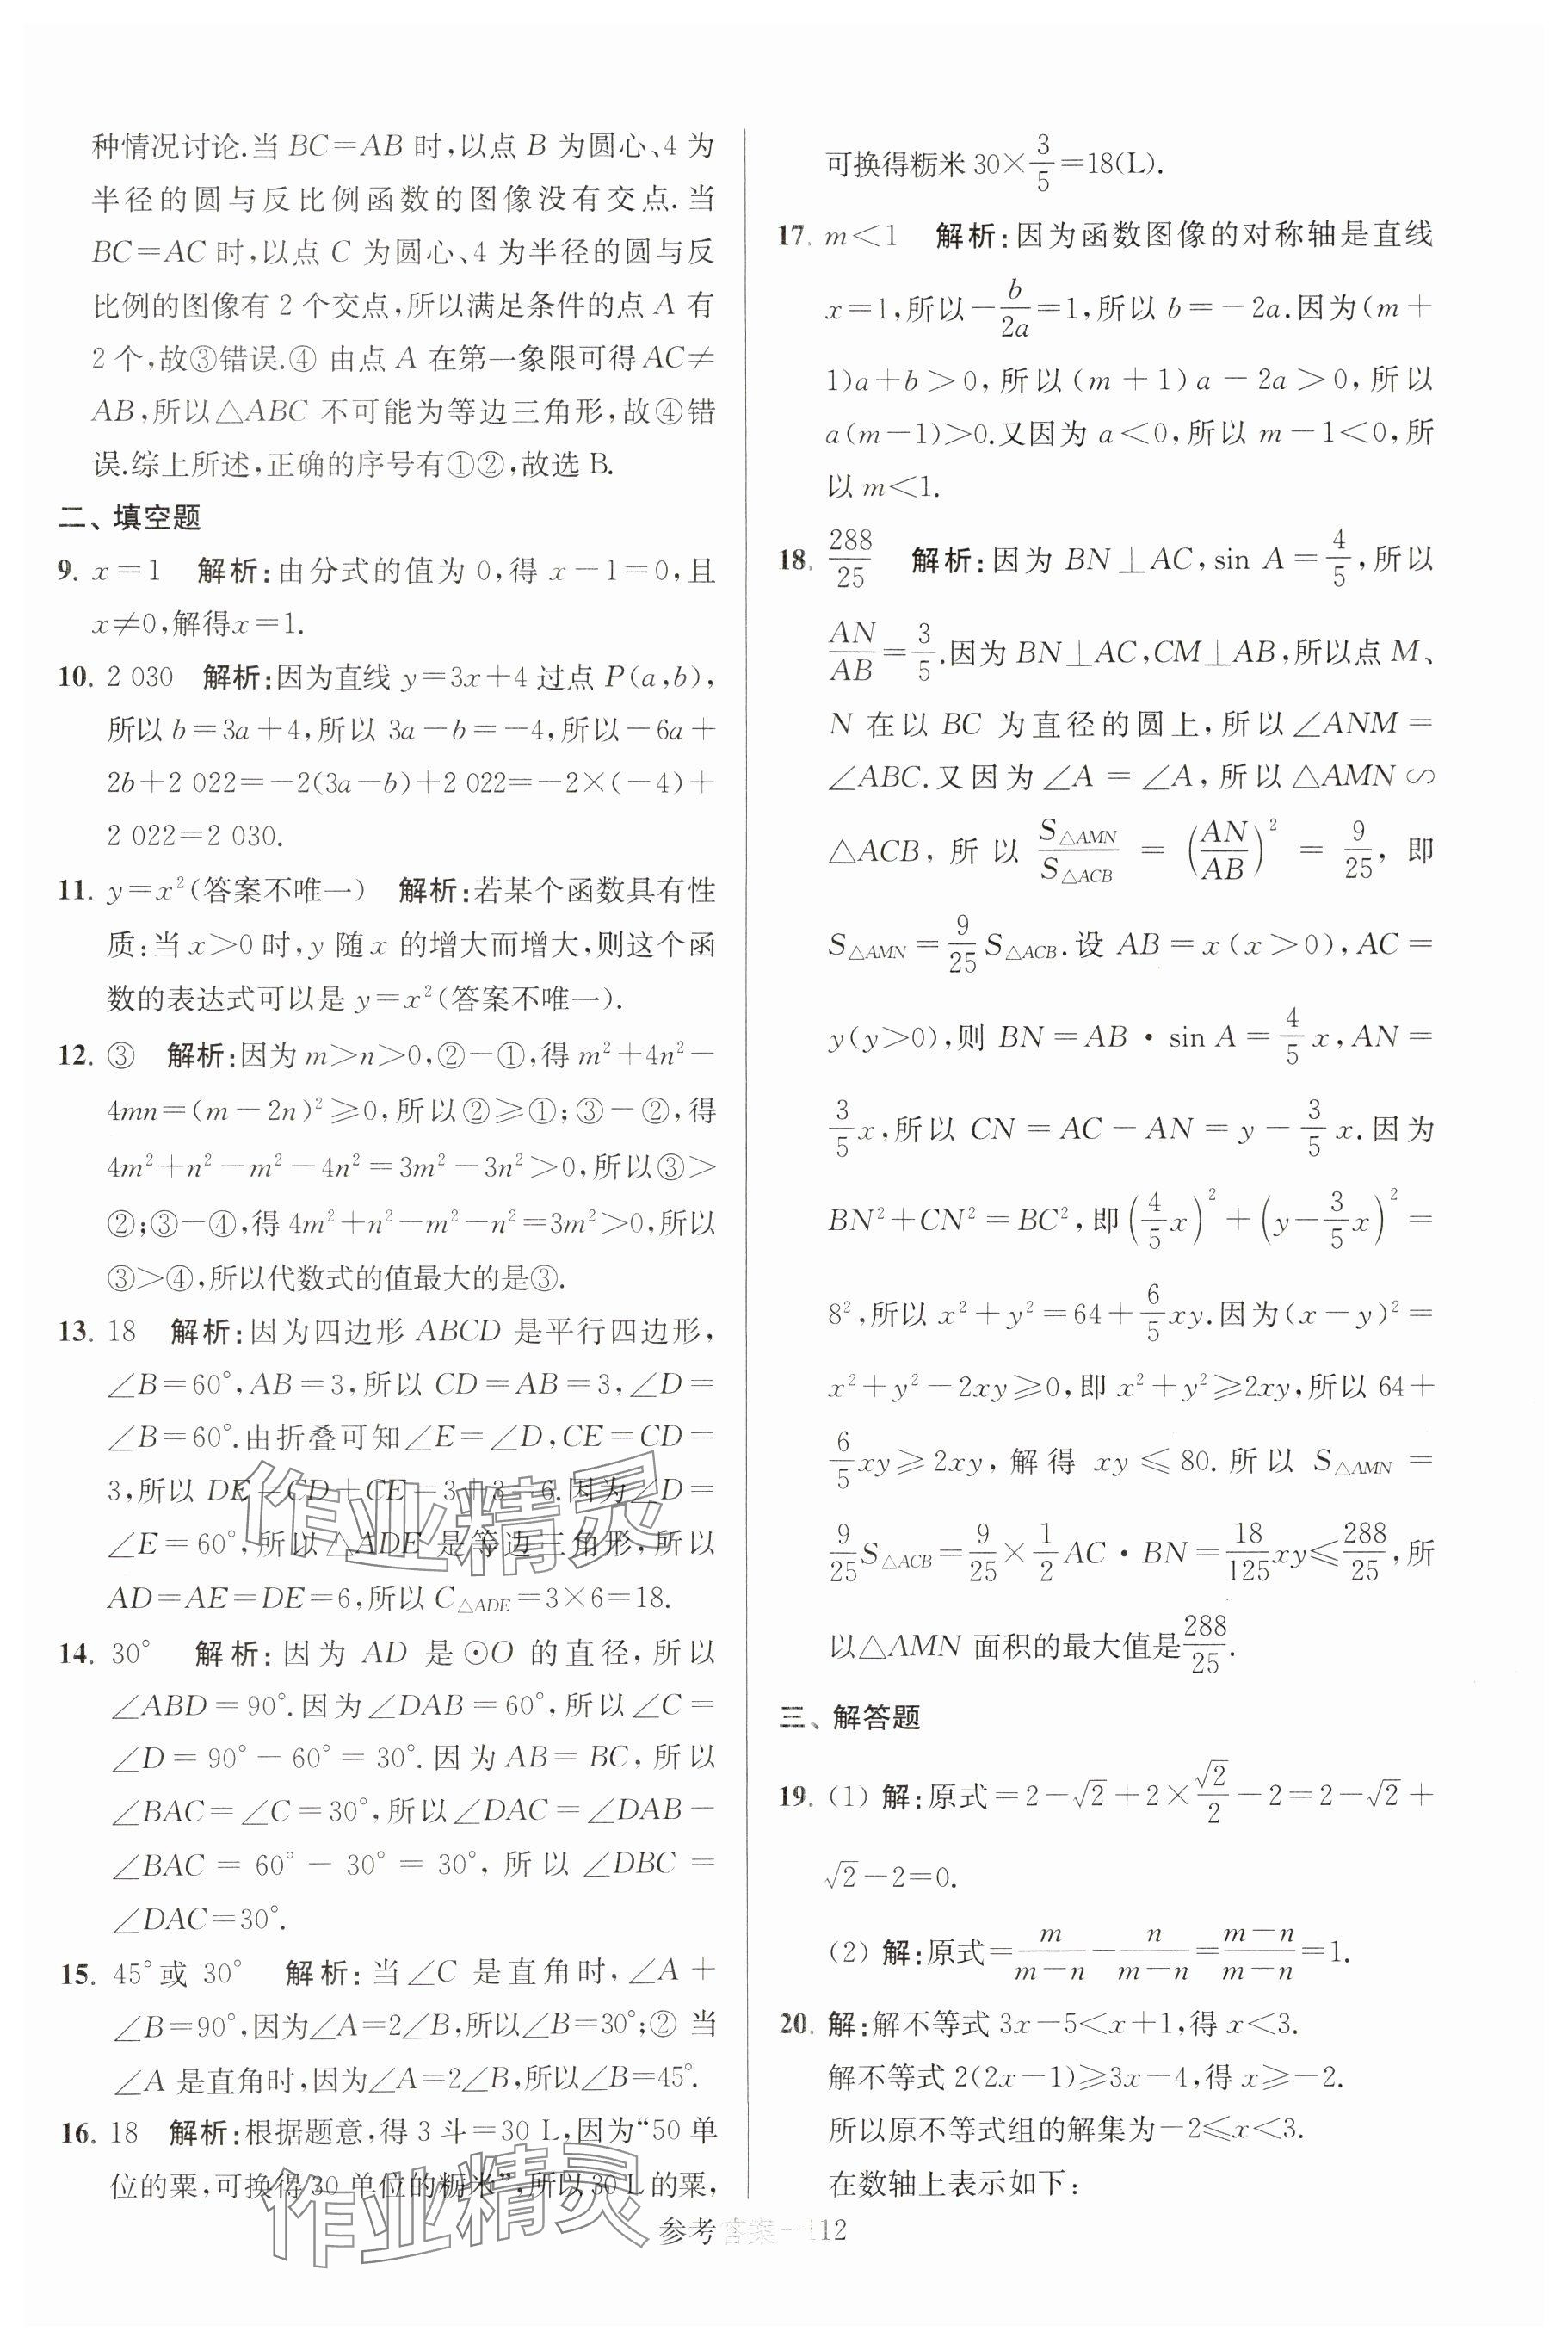 种情况讨论.当 BC=AB 时,以点 B 为圆心、4 为
半径的圆与反比例函数的图像没有交点.当
BC=AC 时,以点 C 为圆心、4 为半径的圆与反
比例的图像有 2 个交点,所以满足条件的点 A 有
2 个,故③错误.④ 由点 A 在第一象限可得 AC≠
AB,所以△ABC 不可能为等边三角形,故④错
误.综上所述,正确的序号有①②,故选 B.
二、填空题
9. x=1 解析:由分式的值为 0,得 x-1=0,且
x≠0,解得x=1.
10. 2 030 解析:因为直线 y=3x+4 过点 P(a,b),
所以 b=3a+4,所以 3a-b=-4,所以-6a+
2b+2 022=-2(3a-b)+2 022=-2×(-4)+
2 022=2 030.
11. y=x²(答案不唯一) 解析:若某个函数具有性
质:当 x>0 时,y 随 x 的增大而增大,则这个函
数的表达式可以是 y=x²(答案不唯一).
12. ③ 解析:因为 m>n>0,②-①,得 m²+4n²-
4mn=(m-2n)²≥0,所以②≥①;③-②,得
4m²+n²-m²-4n²=3m²-3n²>0,所以③>
②;③-④,得 4m²+n²-m²-n²=3m²>0,所以
③>④,所以代数式的值最大的是③.
13. 18 解析:因为四边形 ABCD 是平行四边形,
∠B=60°,AB=3,所以 CD=AB=3,∠D=
∠B=60°.由折叠可知∠E=∠D,CE=CD=
3,所以 DE=CD+CE=3+3=6.因为∠D=
∠E=60°,所以△ADE 是等边三角形,所以
AD=AE=DE=6,所以 C△ADE=3×6=18.
14. 30° 解析:因为 AD 是⊙O 的直径,所以
∠ABD=90°.因为∠DAB=60°,所以∠C=
∠D=90°-60°=30°.因为AB=BC,所以
∠BAC=∠C=30°,所以∠DAC=∠DAB-
∠BAC=60°-30°=30°,所以∠DBC=
∠DAC=30°.
15. 45°或 30° 解析:当∠C 是直角时,∠A+
∠B=90°,因为∠A=2∠B,所以∠B=30°;② 当
∠A 是直角时,因为∠A=2∠B,所以∠B=45°.
16. 18 解析:根据题意,得 3 斗=30 L,因为“50 单
位的粟,可换得 30 单位的粝米”,所以 30 L 的粟,
可换得粝米 30×3/5=18(L).
17. m<1 解析:因为函数图像的对称轴是直线
x=1,所以-b/2a=1,所以 b=-2a.因为(m+
1)a+b>0,所以(m+1)a-2a>0,所以
a(m-1)>0.又因为 a<0,所以 m-1<0,所
以 m<1.
18. 288/25 解析:因为 BN⊥AC,sin A=4/5,所以
AN/AB=3/5.因为BN⊥AC,CM⊥AB,所以点 M、
N 在以 BC 为直径的圆上,所以∠ANM=
∠ABC.又因为∠A=∠A,所以△AMN∽
△ACB,所以 S△AMN/S△ACB=(AN/AB)²=9/25,即
S△AMN=9/25 S△ACB.设 AB=x(x>0),AC=
y(y>0),则 BN=AB·sin A=4/5 x,AN=
3/5 x,所以 CN=AC-AN=y-3/5 x.因为
BN²+CN²=BC²,即(4/5 x)²+(y-3/5 x)²=
8²,所以 x²+y²=64+6/5 xy.因为(x-y)²=
x²+y²-2xy≥0,即 x²+y²≥2xy,所以 64+
6/5 xy≥2xy,解得 xy≤80.所以 S△AMN=
9/25 S△ACB=9/25×1/2 AC·BN=18/125 xy≤288/25,所
以△AMN 面积的最大值是288/25.
三、解答题
19. (1) 解:原式=2-√2+2×√2/2-2=2-√2+
√2-2=0.
(2) 解:原式=m/(m-n)-n/(m-n)=(m-n)/(m-n)=1.
20. 解:解不等式 3x-5<x+1,得 x<3.
解不等式 2(2x-1)≥3x-4,得 x≥-2.
所以原不等式组的解集为-2≤x<3.
在数轴上表示如下:
参考答案-112
作业精灵
作业精灵